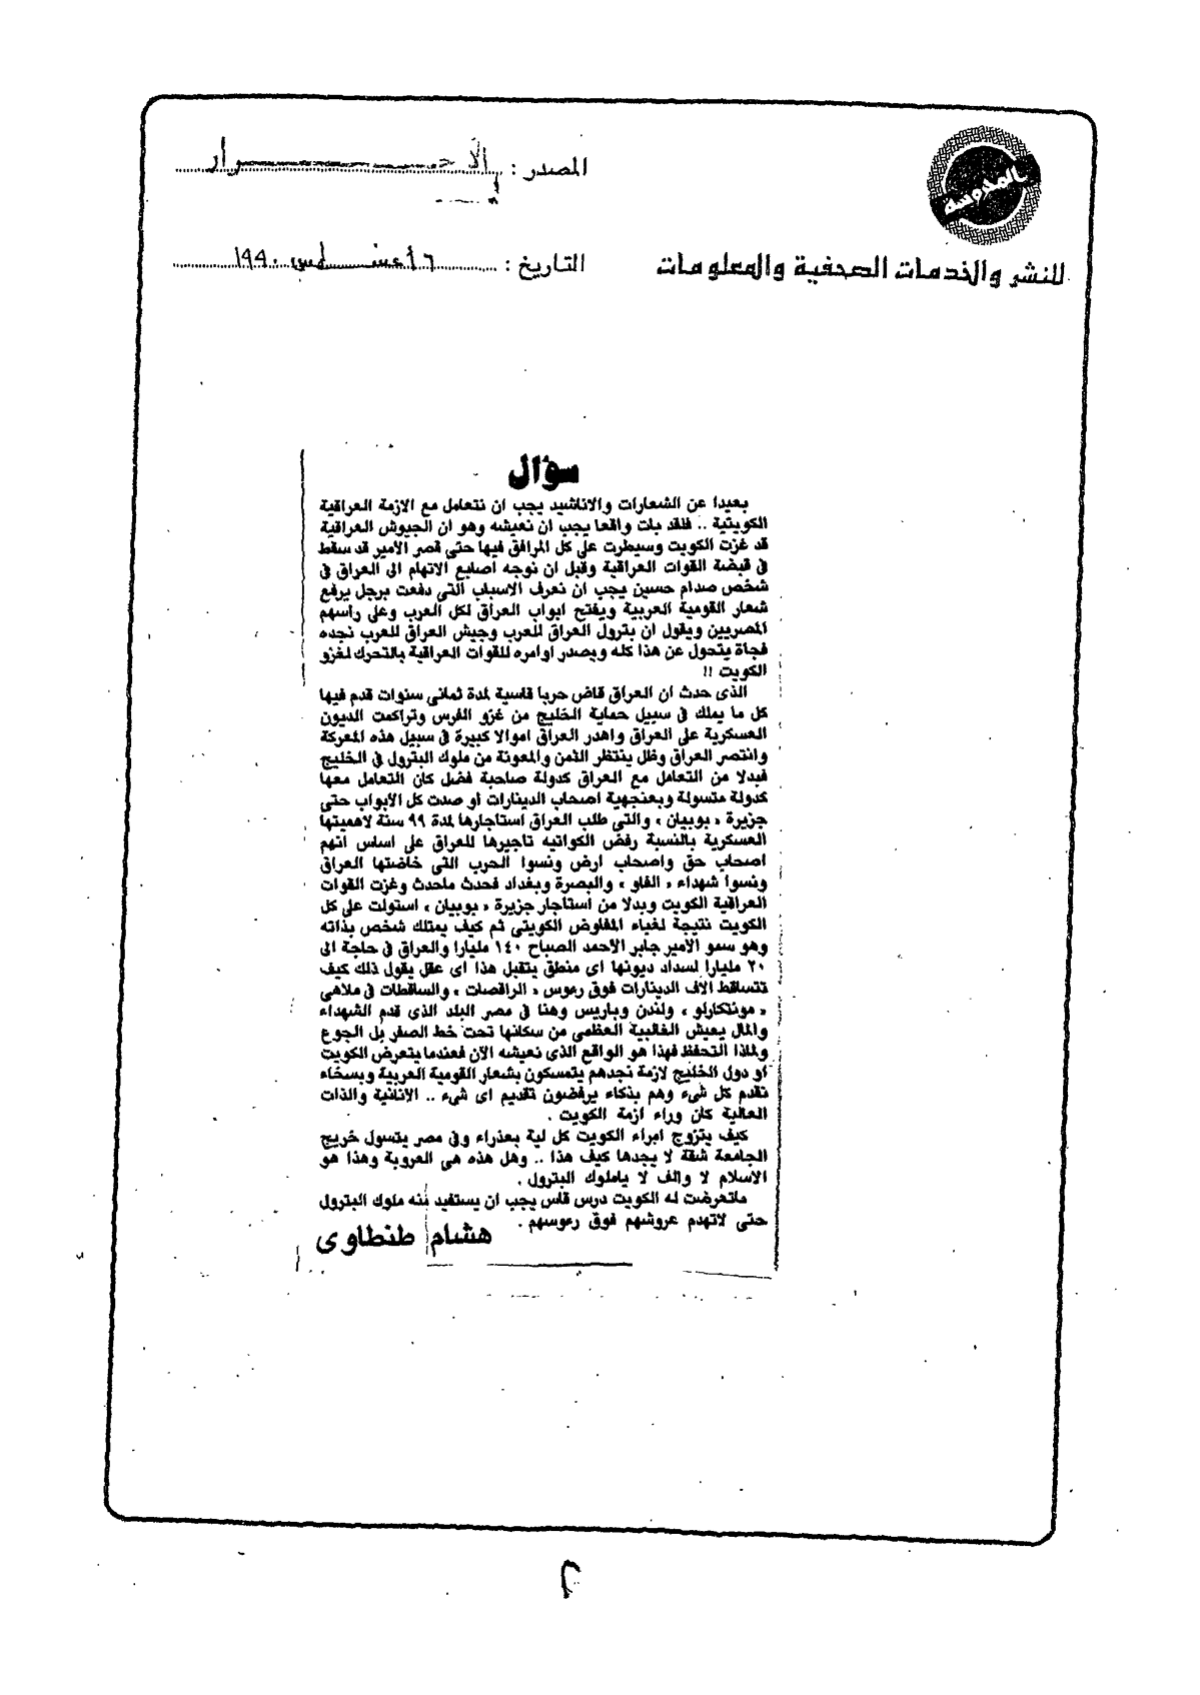 المصدر : الأحرار
بالمدرسة
التاريخ : ٦ أغسطس ١٩٩٠
للنشر والخدمات الصحفية والمعلومات
سؤال
بعيدا عن الشعارات والاناشيد يجب ان نتعامل مع الازمة العراقية
الكويتية .. فلقد بات واقعا يجب ان نعيشه وهو ان الجيوش العراقية
قد غزت الكويت وسيطرت على كل المرافق فيها حتى قصر الأمير قد سقط
فى قبضة القوات العراقية وقبل ان نوجه اصابع الاتهام الى العراق فى
شخص صدام حسين يجب ان نعرف الاسباب التى دفعت برجل يرفع
شعار القومية العربية ويفتح ابواب العراق لكل العرب وعلى راسهم
المصريين ويقول ان بترول العراق للعرب وجيش العراق للعرب نجده
فجاة يتحول عن هذا كله ويصدر اوامره للقوات العراقية بالتحرك لغزو
الكويت !!
الذى حدث ان العراق قاض حربا قاسية لمدة ثمانى سنوات قدم فيها
كل ما يملك فى سبيل حماية الخليج من غزو الفرس وتراكمت الديون
العسكرية على العراق واهدر العراق اموالا كبيرة فى سبيل هذه المعركة
وانتصر العراق وظل ينتظر الثمن والمعونة من ملوك البترول فى الخليج
فبدلا من التعامل مع العراق كدولة صاحبة فضل كان التعامل معها
كدولة متسولة وبعنجهية اصحاب الدينارات أو صدت كل الأبواب حتى
جزيرة « بوبيان » والتى طلب العراق استاجارها لمدة ٩٩ سنة لاهميتها
العسكرية بالنسبة رفض الكواتيه تاجيرها للعراق على اساس انهم
اصحاب حق واصحاب ارض ونسوا الحرب التى خاضتها العراق
ونسوا شهداء « الفاو » والبصرة وبغداد فحدث ماحدث وغزت القوات
العراقية الكويت وبدلا من استاجار جزيرة « بوبيان » استولت على كل
الكويت نتيجة لغباء المفاوض الكويتى ثم كيف يمتلك شخص بذاته
وهو سمو الأمير جابر الأحمد الصباح ١٤٠ مليارا والعراق فى حاجة الى
٢٠ مليارا لسداد ديونها اى منطق يتقبل هذا اى عقل يقول ذلك كيف
تتساقط الاف الدينارات فوق رءوس « الراقصات » والساقطات فى ملاهى
« مونتكارلو » ولندن وباريس وهنا فى مصر البلد الذى قدم الشهداء
والمال يعيش الغالبية العظمى من سكانها تحت خط الصفر بل الجوع
ولماذا التحفظ فهذا هو الواقع الذى نعيشه الآن فعندما يتعرض الكويت
او دول الخليج لازمة نجدهم يتمسكون بشعار القومية العربية وبسخاء
نقدم كل شىء وهم بذكاء يرفضون تقديم اى شىء .. الانانية والذات
العالية كان وراء ازمة الكويت .
كيف يتزوج امراء الكويت كل لية بعذراء وفى مصر يتسول خريج
الجامعة شقة لا يجدها كيف هذا .. وهل هذه هى العروبة وهذا هو
الاسلام لا والف لا ياملوك البترول .
ماتعرضت له الكويت درس قاس يجب ان يستفيد منه ملوك البترول
حتى لاتهدم عروشهم فوق رءوسهم .
هشام طنطاوى